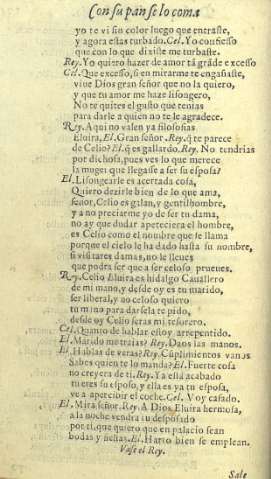 Con su pan se lo coma
yo te vi sin color luego que entraste,
y agora estas turbado. Cel. Yo confiesso
que con lo que dixiste me turbaste.
Rey. Yo quiero hazer de amor tã grãde excesso
Cel. Que excesso, si en mirarme te engañaste,
viue Dios gran señor que no la quiero,
y que tu amor me haze lisongero,
No te quites el gusto que tenias
para darle a quien no te le agradece.
Rey. Aqui no valen ya filosofias
Eluira, El. Gran señor. Rey. q̃ te parece
de Celio? El. q̃ es gallardo. Rey. No tendrias
por dichosa, pues ves lo que merece
la muger que llegasse a ser su esposa?
El. Lisongearle es acertada cosa,
Quiero dezirle bien de lo que ama,
señor, Celio es galan, y gentilhombre,
y a no preciarme yo de ser tu dama,
no ay que dudar apeteciera el hombre,
es Celio como el nombre que te llama
porque el cielo le ha dado hasta su nombre,
si visitares damas, no le lleues
que podra ser que a ser celoso prueues.
Rey. Celio Eluira es hidalgo Cauallero
de mi mano, y desde oy es tu marido,
ser liberal, y no celoso quiero
tu mano para darsela te pido,
desde oy Celio seras mi tesorero.
Cel. Quanto de hablar estoy arrepentido.
El. Marido me traias? Rey. Daos las manos.
El. Hablas de veras? Rey. Cũplimientos vanos
Sabes quien te lo manda? El. Fuerte cosa
no creyera de ti. Rey. Ya está acabado
tu eres su esposo, y ella es ya tu esposa,
ve a apercibir el coche. Cel. Voy casado.
El. Mira señor. Rey. A Dios Eluira hermosa,
a la noche vendra tu desposado
por ti, que quiero que en palacio sean
bodas y fiestas. El. Harto bien se emplean.
Vase el Rey.
Sale